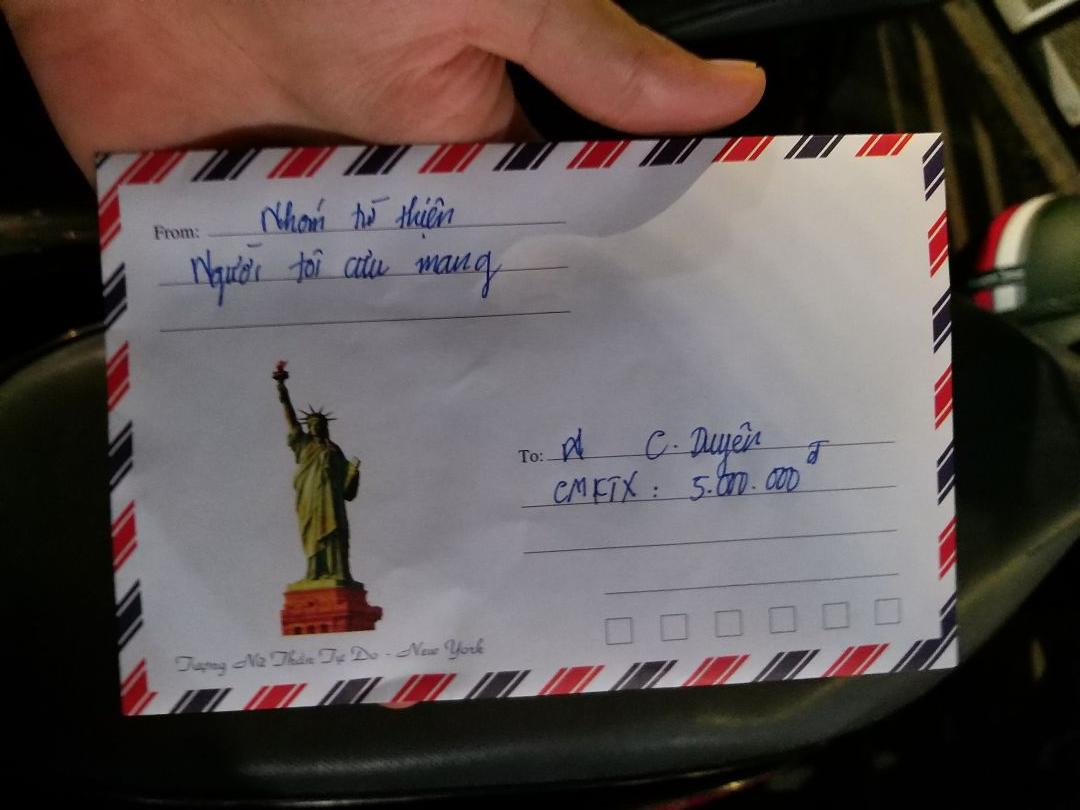 From: Nhóm từ thiện
Người tôi cưu mang
To: C. Duyên
CMKTX : 5.000.000đ
Tượng Nữ Thần Tự Do - New York